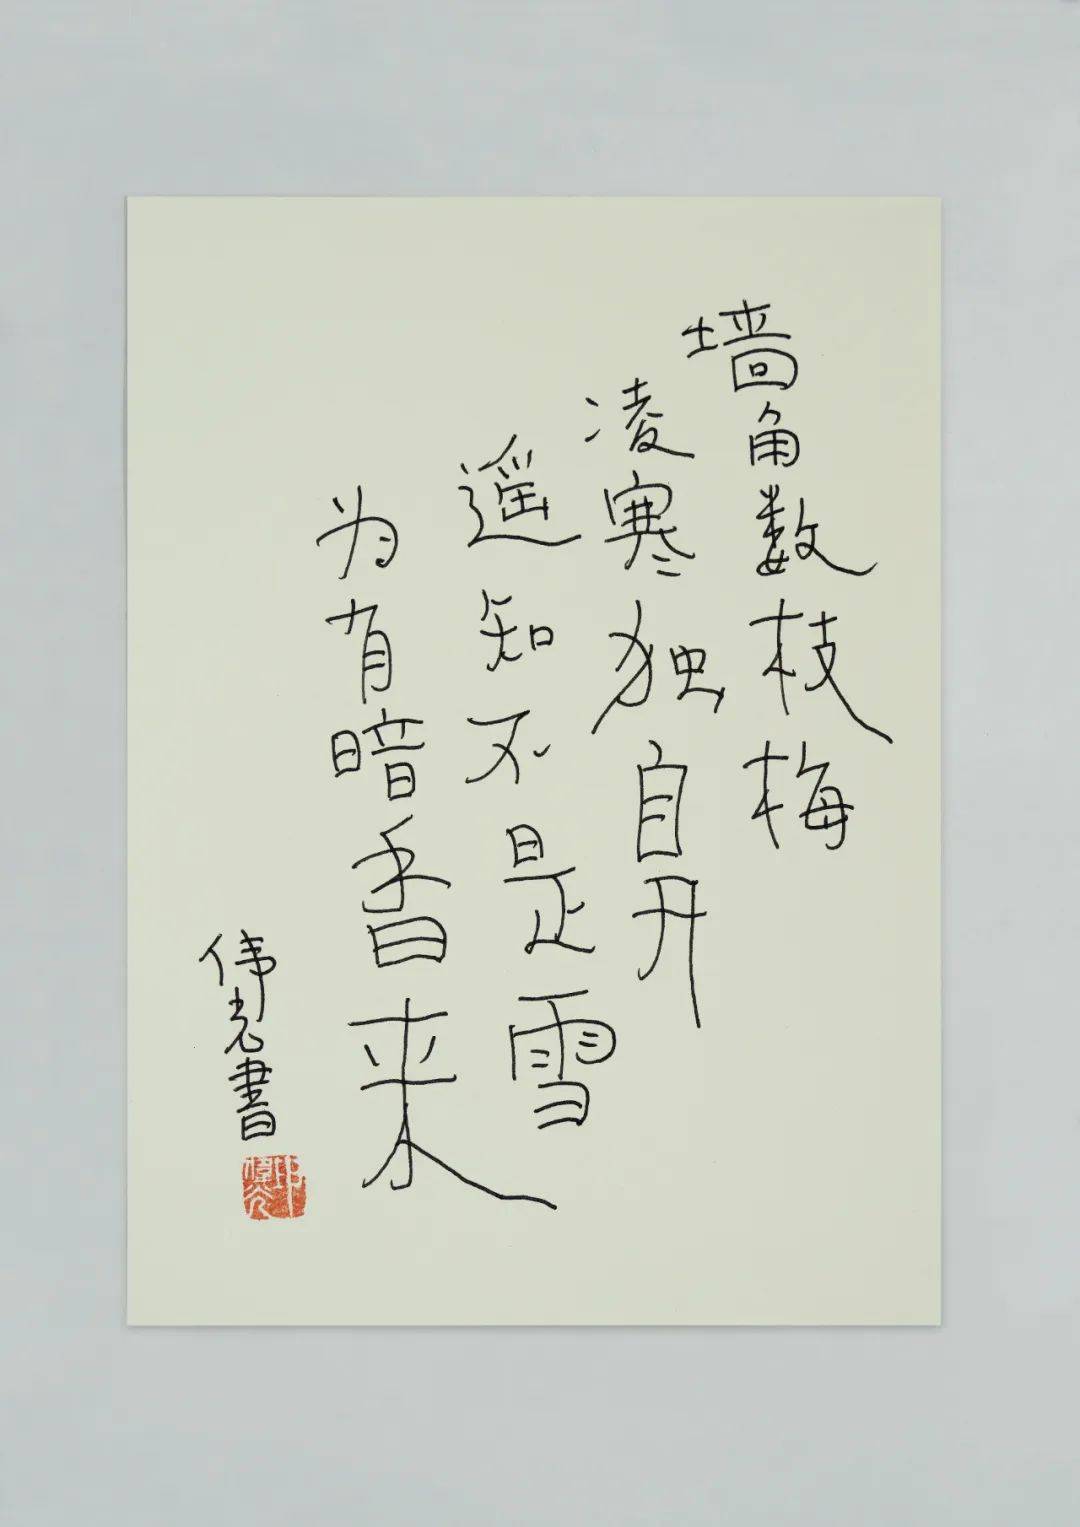 墙角数枝梅
凌寒独自开
遥知不是雪
为有暗香来
伟光書